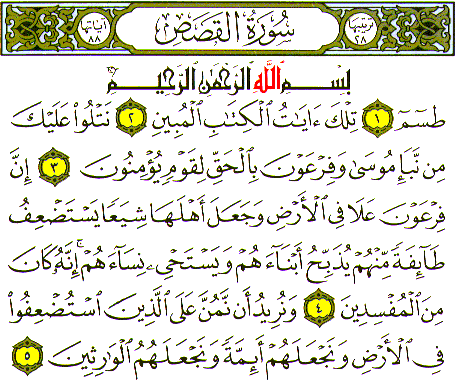 ترتيبها ٢٨ سُورَةُ القَصَصِ آياتها ٨٨
بِسْمِ اللَّهِ الرَّحْمَٰنِ الرَّحِيمِ
طسٓمٓ ١ تِلْكَ ءَايَٰتُ ٱلْكِتَٰبِ ٱلْمُبِينِ ٢ نَتْلُوا۟ عَلَيْكَ
مِن نَّبَإِ مُوسَىٰ وَفِرْعَوْنَ بِٱلْحَقِّ لِقَوْمٍ يُؤْمِنُونَ ٣ إِنَّ
فِرْعَوْنَ عَلَا فِى ٱلْأَرْضِ وَجَعَلَ أَهْلَهَا شِيَعًا يَسْتَضْعِفُ
طَآئِفَةً مِّنْهُمْ يُذَبِّحُ أَبْنَآءَهُمْ وَيَسْتَحْىِۦ نِسَآءَهُمْ ۚ إِنَّهُۥ كَانَ
مِنَ ٱلْمُفْسِدِينَ ٤ وَنُرِيدُ أَن نَّمُنَّ عَلَى ٱلَّذِينَ ٱسْتُضْعِفُوا۟
فِى ٱلْأَرْضِ وَنَجْعَلَهُمْ أَئِمَّةً وَنَجْعَلَهُمُ ٱلْوَٰرِثِينَ ٥